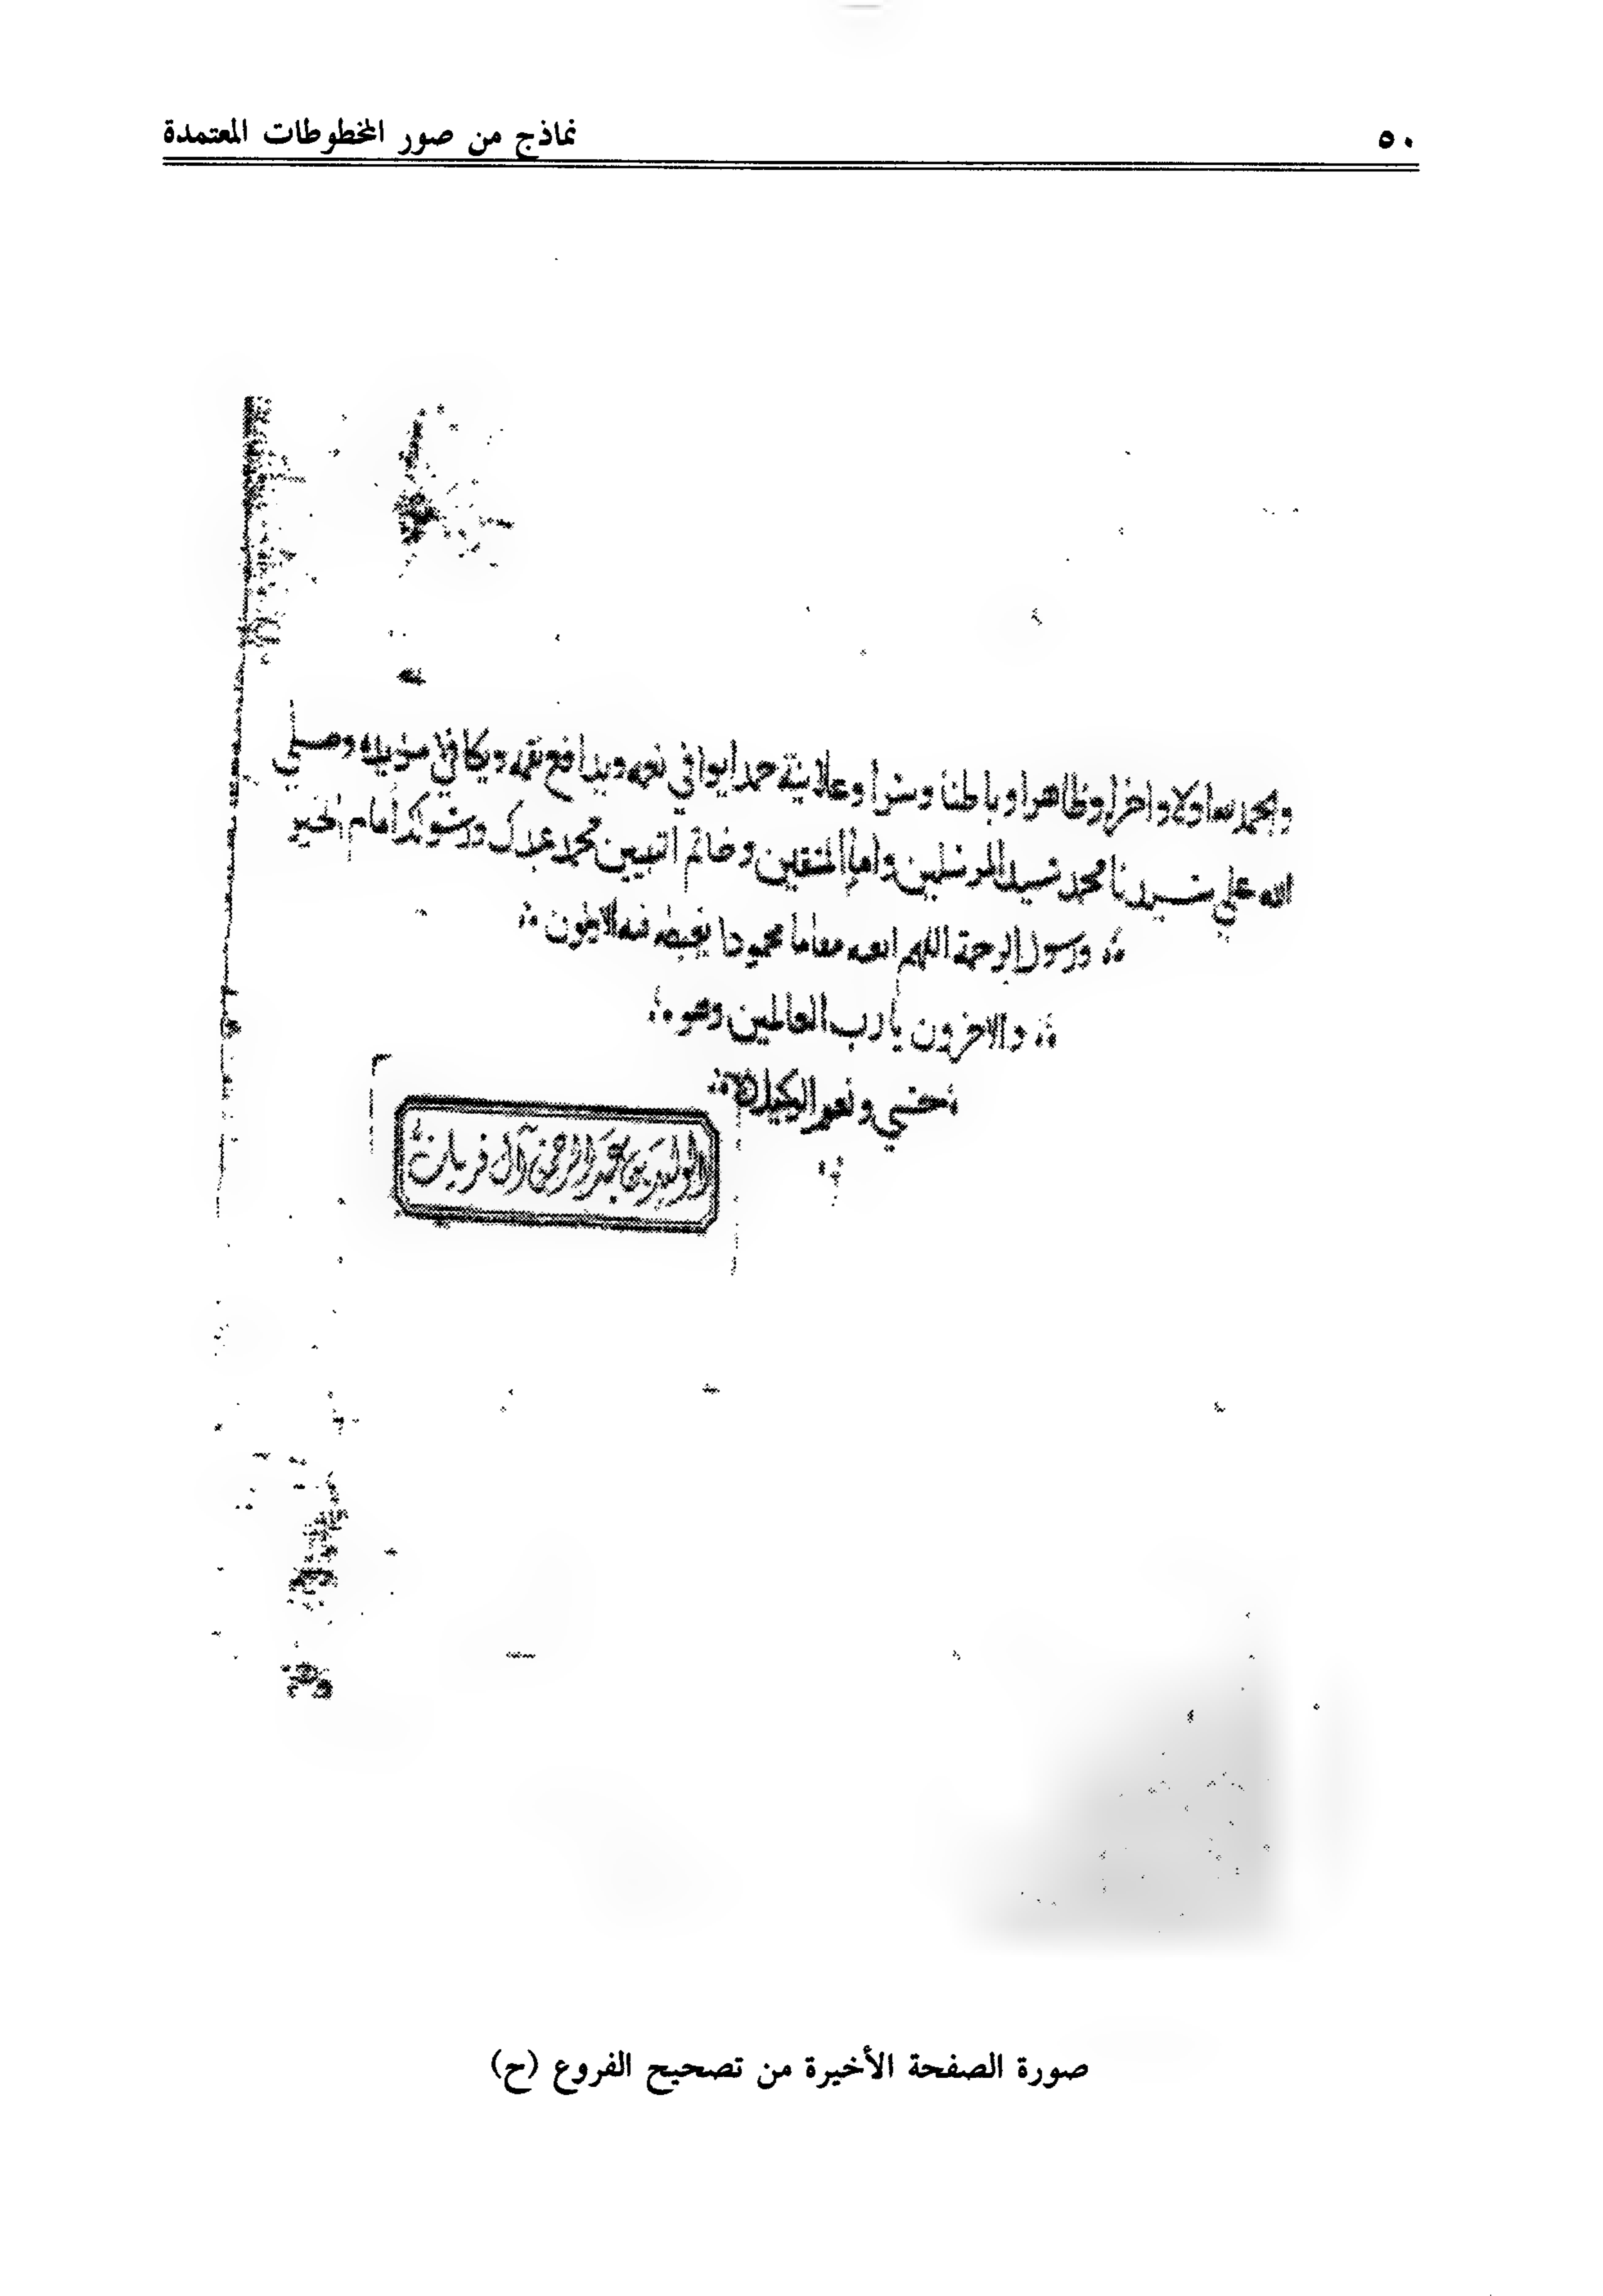 ٥٠
نماذج من صور المخطوطات المعتمدة
والحمد لله اولا واخرا وظاهرا وباطنا وسرا وعلانية حمدا يوافي نعمه ويدافع نقمه ويكافي مزيده وصلى
الله علي سيدنا محمد سيد المرسلين وامام المتقين وخاتم النبيين محمد عبدك ورسولك امام الخير
ورسول الرحمة اللهم ابعثه مقاما محمودا يغبطه فيه الاولون
والاخرون يارب العالمين وهو
حسبي ونعم الوكيل
الوليد بن عبد الرحمن آل فريان
صورة الصفحة الأخيرة من تصحيح الفروع (ح)